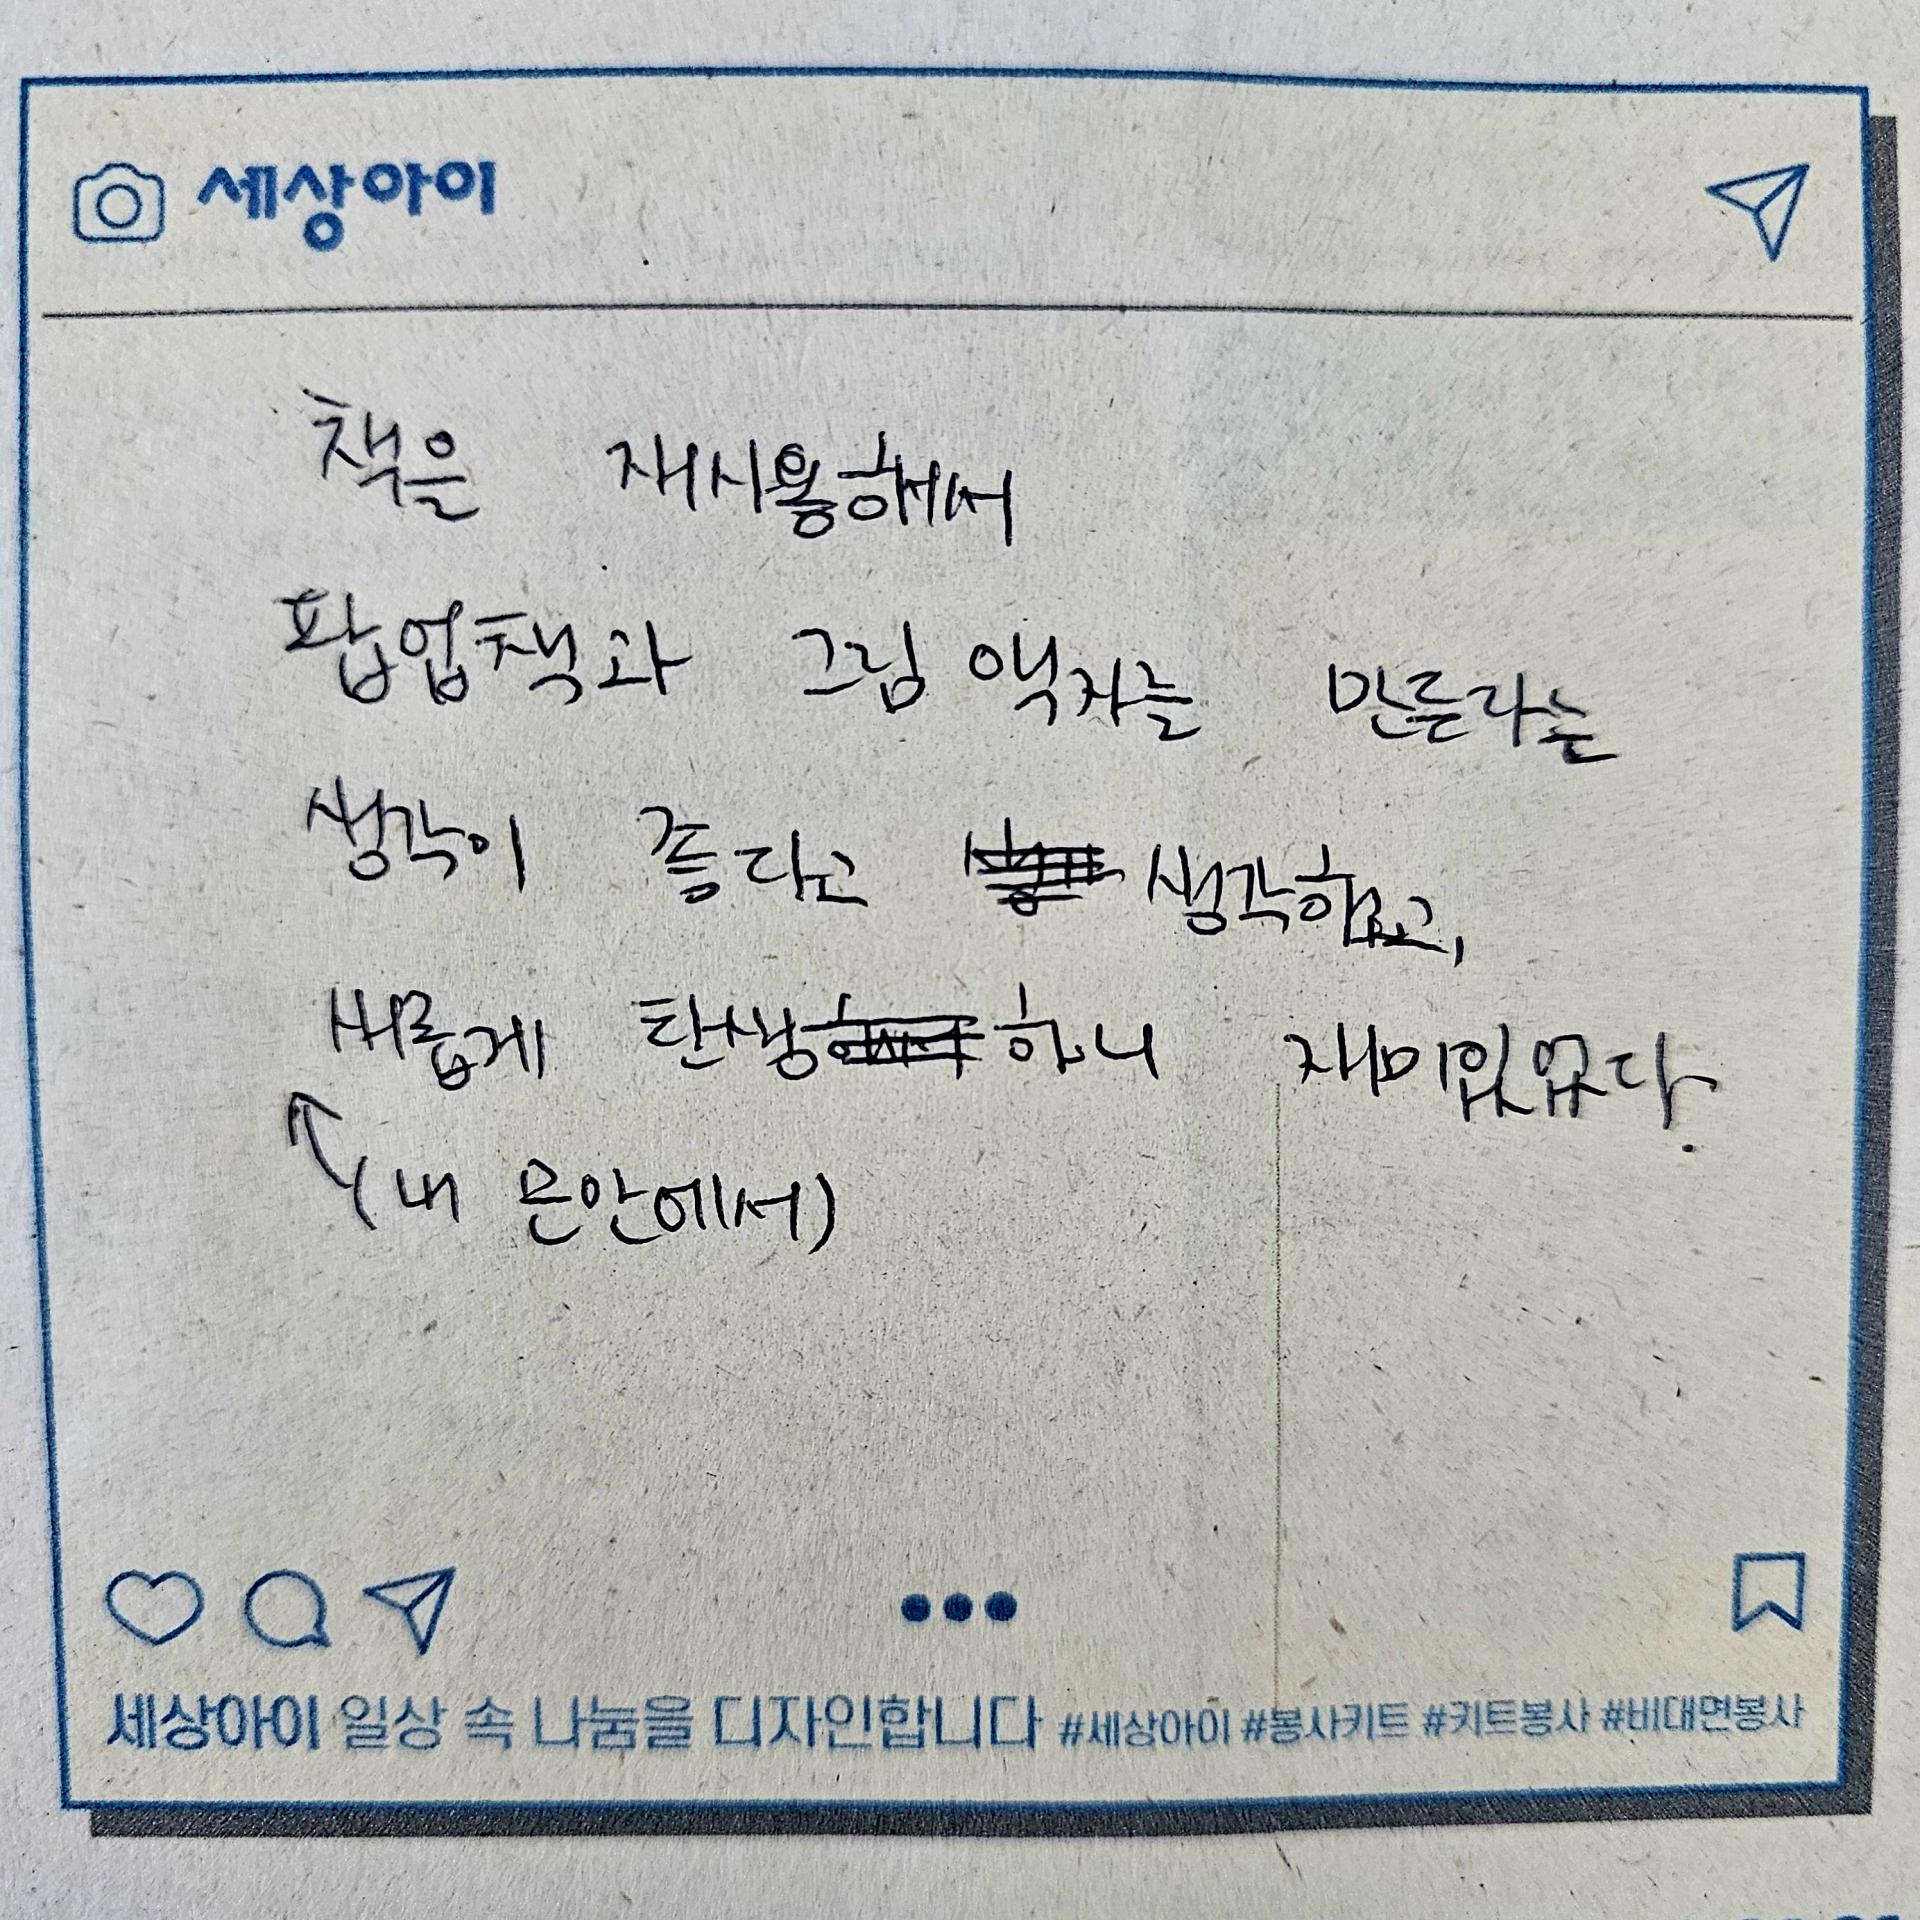 세상아이
책을 재사용해서
팝업책과 그림 액자를 만들라는
생각이 좋다고 생각했고,
새롭게 탄생하니 재미있었다.
(내 손안에서)
세상아이 일상 속 나눔을 디자인합니다 #세상아이 #봉사키트 #키트봉사 #비대면봉사